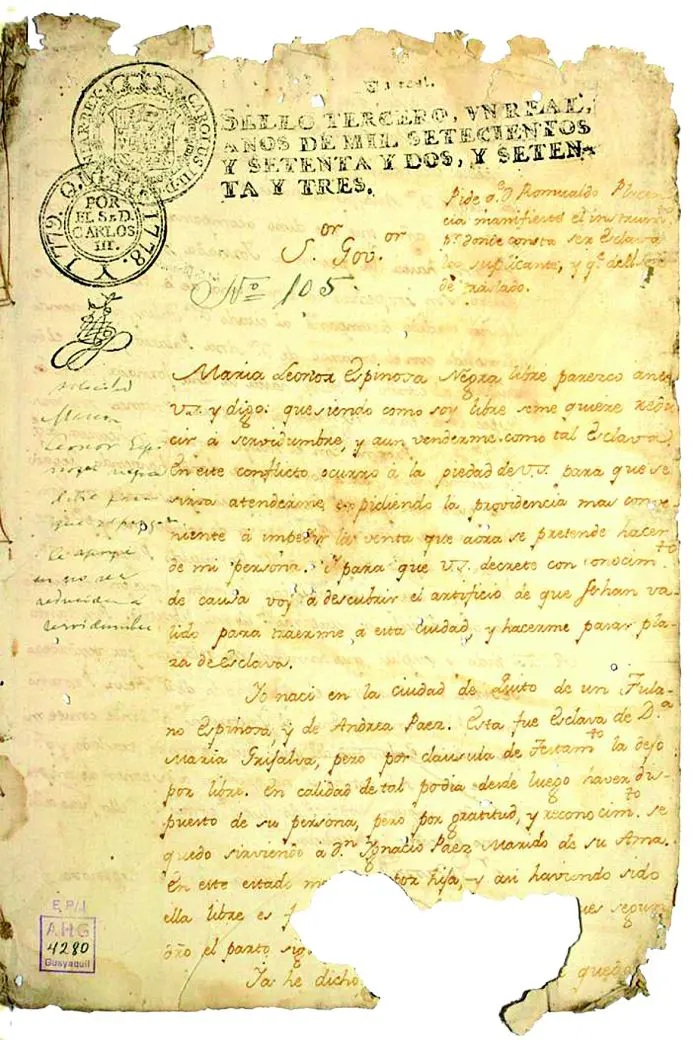 Un real.
SELLO TERCERO, VN REAL,
AÑOS DE MIL SETECIENTOS
Y SETENTA Y DOS, Y SETEN-
TA Y TRES.
CAROLUS III
POR
EL S. D.
CARLOS
III.
1779. 1778.
Pide q.e D. Romualdo Placen
cia manifieste el instrum.
pr. donde consta ser Esclava
la suplicante, y q.e
de traslado.
S.or Gov.or
No 105.
Maria Leonor Espinosa Negra libre paresco ante
V.S. y digo: que siendo como soy libre se me quiere redu
cir à servidumbre, y aun venderme como tal Esclava.
En este conflicto ocurro à la piedad de V.S. para que se
sirva atenderme, expidiendo la providencia mas conve
niente à impedir la venta que aora se pretende hacer
de mi persona. Y para que V.S. decrete con conocim.to
de causa voy à descubrir el artificio de que se han va
lido para traerme à esta ciudad, y hacerme pasar pla
za de Esclava.
solicita
Maria
Leonor Espi
nosa negra
libre para
que
le apoye
en no ser
reducida a
servidumbre
Yo naci en la ciudad de Quito de un Fula
no Espinosa, y de Andrea Paez. Esta fue Esclava de D.a
Maria Grijalva, pero por clausula de Testam.to la dejo
por libre. En calidad de tal podia desde luego haver dis
puesto de su persona, pero por gratitud, y reconocim.to se
quedo sirviendo à d.n Ignacio Paez Marido de su Ama.
En este estado hija, y asi haviendo sido
ella libre es pues segun
dro el parto
Ya he dicho, quedo
E.P/J
AHG
4280
Guayaquil